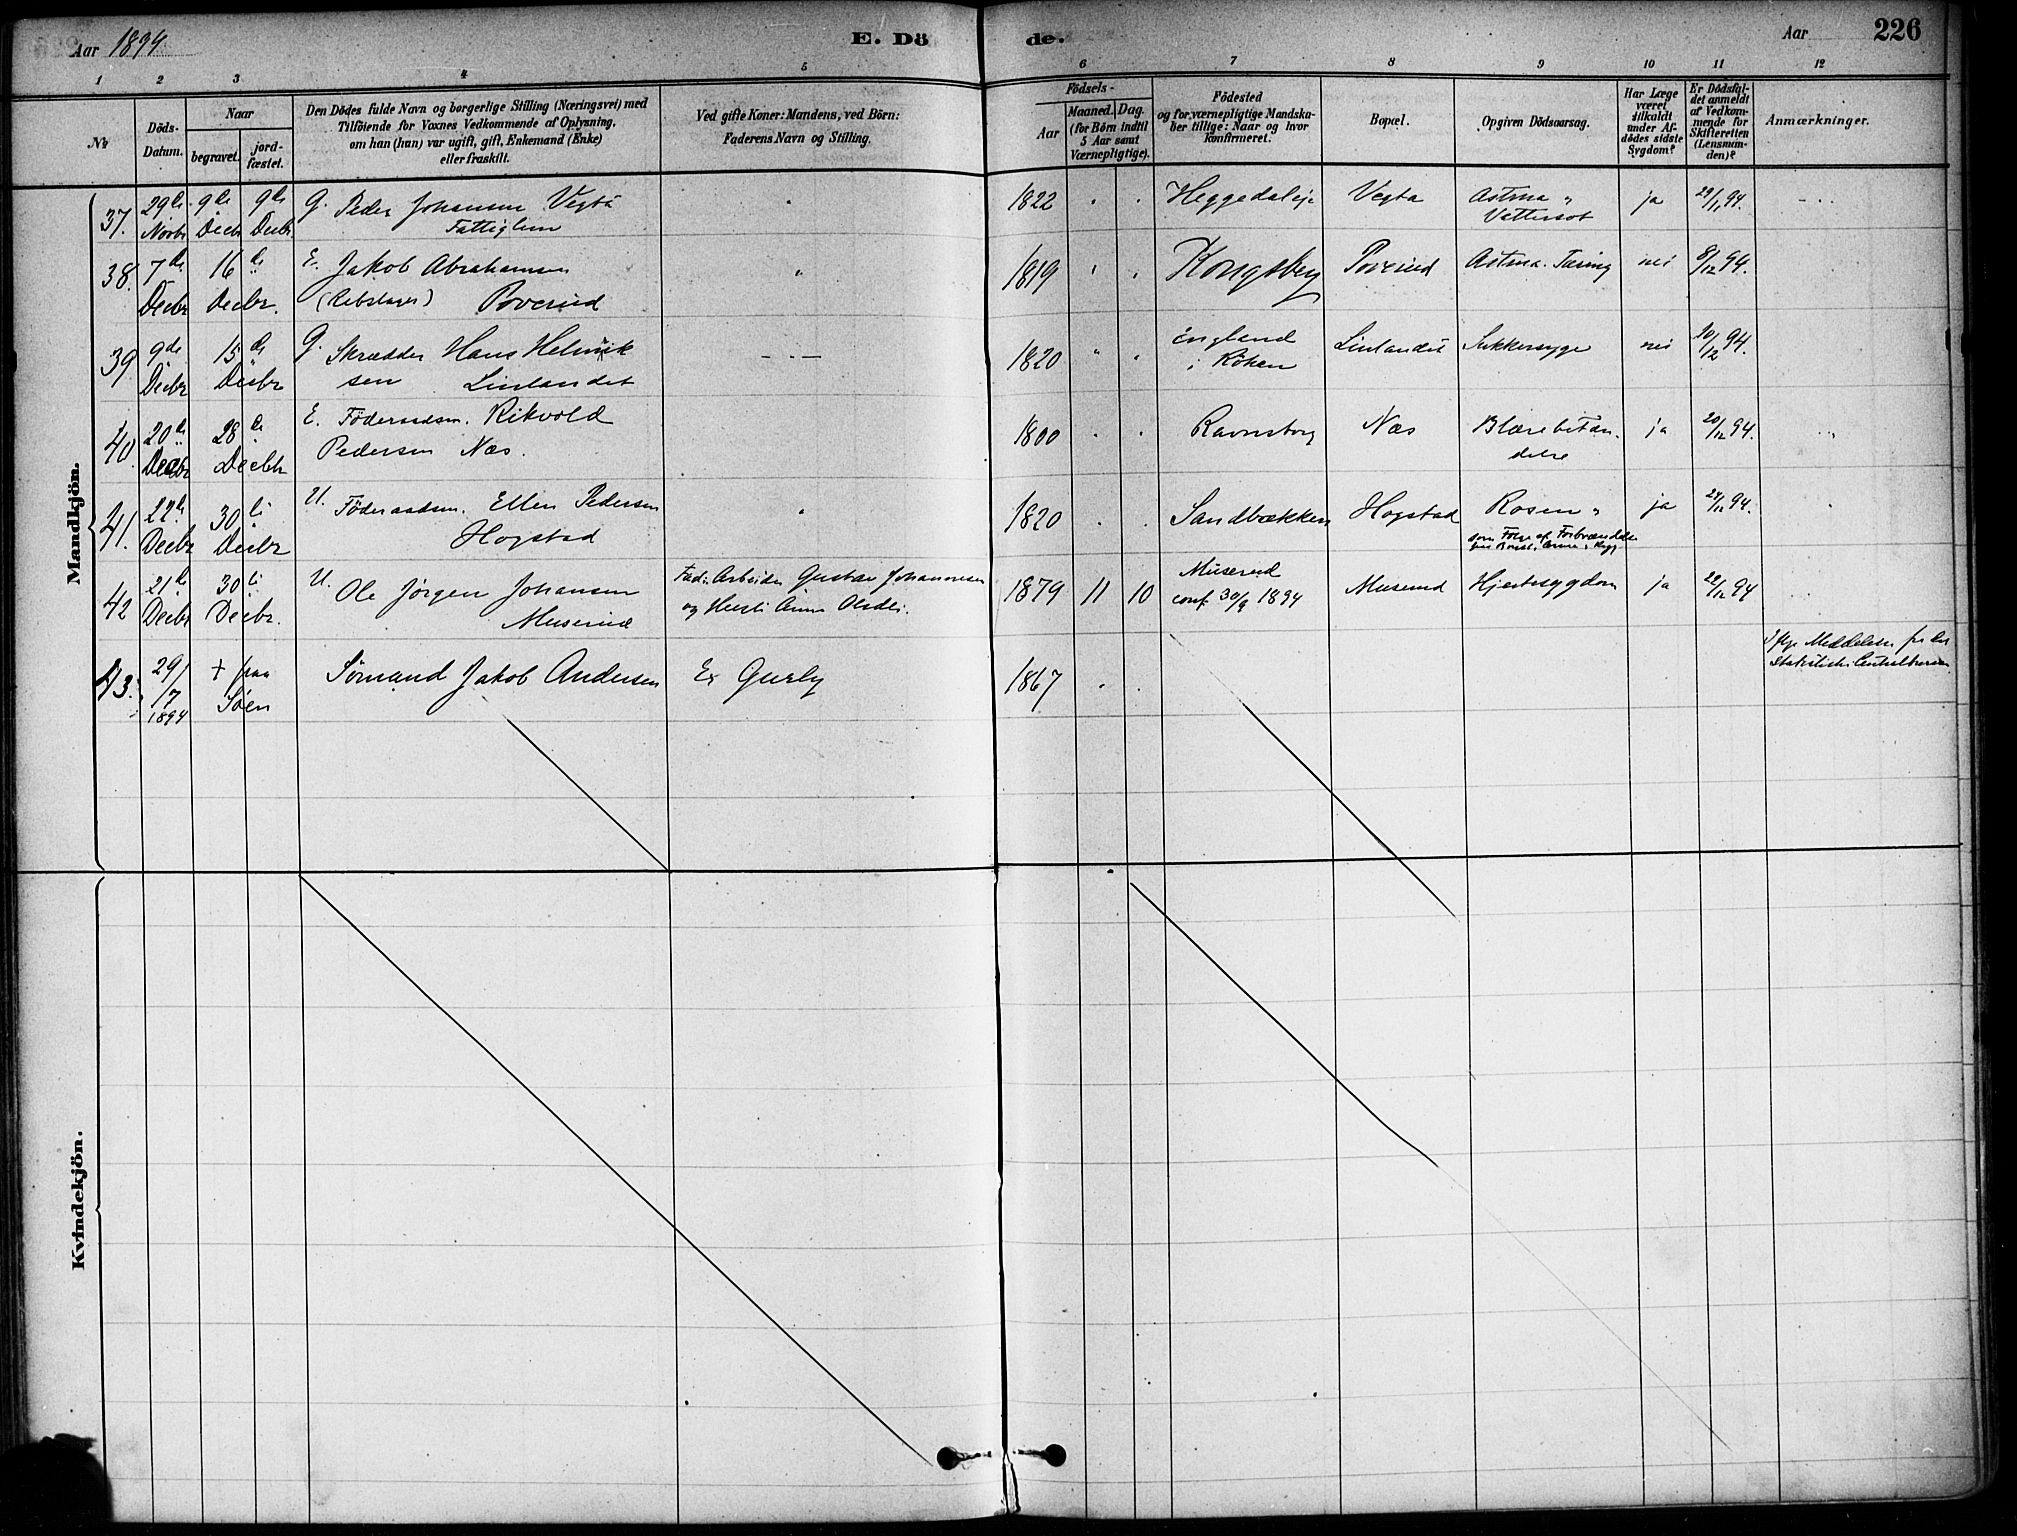 Aar 1894
E. Dö
de.
Aar
226
1 2 3 4 5 6 7 8 9 10 11 12
No
Döds-
Datum.
Naar
begravet.
jord-
fæstet.
Den Dödes fulde Navn og borgerlige Stilling (Næringsvei) med
Tilföiende for Voxnes Vedkommende af Oplysning,
om han (hun) var ugift, gift, Enkemand (Enke)
eller fraskilt.
Ved gifte Koner: Mandens, ved Börn:
Faderens Navn og Stilling.
Födsels-
Aar
Maaned. Dag.
(for Börn indtil
5 Aar samt
Værnepligtige).
Födested
og for værnepligtige Mandska-
ber tillige: Naar og hvor
konfirmeret.
Bopæl.
Opgiven Dödsaarsag.
Har Læge
været
tilkaldt
under Af-
dödes sidste
Sygdom?
Er Dödsfal-
det anmeldt
af Vedkom-
mende for
Skifteretten
(Lensman-
den)?
Anmærkninger.
Mandkjön.
37. 29de Novbr 9de Decbr 9de Decbr
G. Peder Johansen Vegta
Fattiglem
1822
Heggedaleje
Vegta
Astma
Vattersot
ja
29/11 94.
38. 7de Decbr 16de Decbr.
E. Jakob Abrahamsen
(Rebslager) Poverud
1819
Kongsberg
Poverud
Astma. Tæring
nei
8/12 94.
39. 9de Decbr 15de Decbr
G. Skrædder Hans Helmik
sen Linlandet
1820
England
i Röken
Linlandet
Sukkersyge
nei
10/12 94.
40. 20de Decbr 28de Decbr
E. Föderaadsm. Rikvold
Pedersen Næs.
1800
Ravnsborg
Næs
Blærebetæn-
delse
ja
20/12 94.
41. 22de Decbr 30te Decbr
U. Föderaadsm. Ellen Pedersen
Hogstad
1820
Sandbækken
Hogstad
Rosen
som Fölge af Forbrændelse
ja
24/12 94.
42 21de Decbr 30te Decbr.
U. Ole Jørgen Johansen
Muserud
Fad: Arbeider Gustav Johannesen
og Hustru Anne Olsdtr.
1879 11 10
Muserud
conf. 30/9 1894
Muserud
Hjertesygdom
ja
22/12 94
43. 29/7 1894 + paa Søen
Sømand Jakob Andersen
Ex Gurly
1867
Ifølge Meddelelse fra det
Statistiske Centralbureau
Kvindekjön.